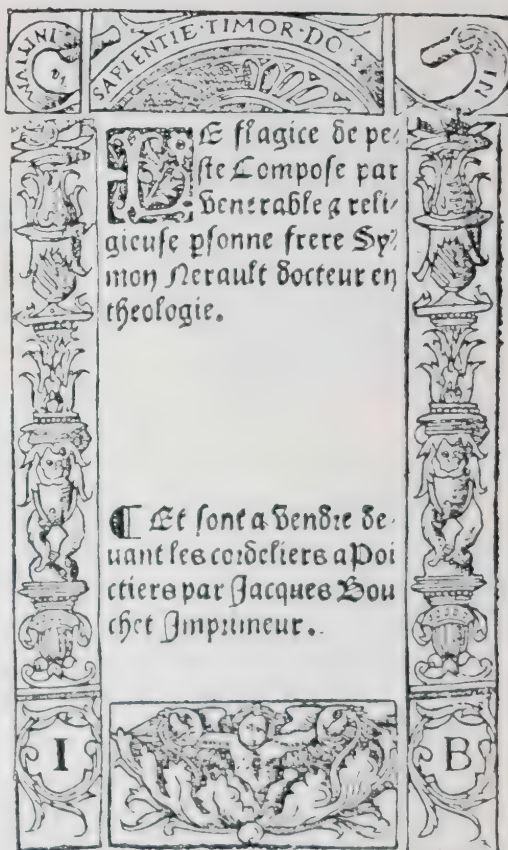 SAPIENTIE·TIMOR·DO·
IN
LE flagice de pe-
ste Compose par
venerable & reli-
gieuse psonne frere Sy-
mon Nerault docteur en
theologie.
¶ Et sont a vendre de-
uant les cordeliers a Poi
ctiers par Jacques Bou
chet Imprimeur.
I
B